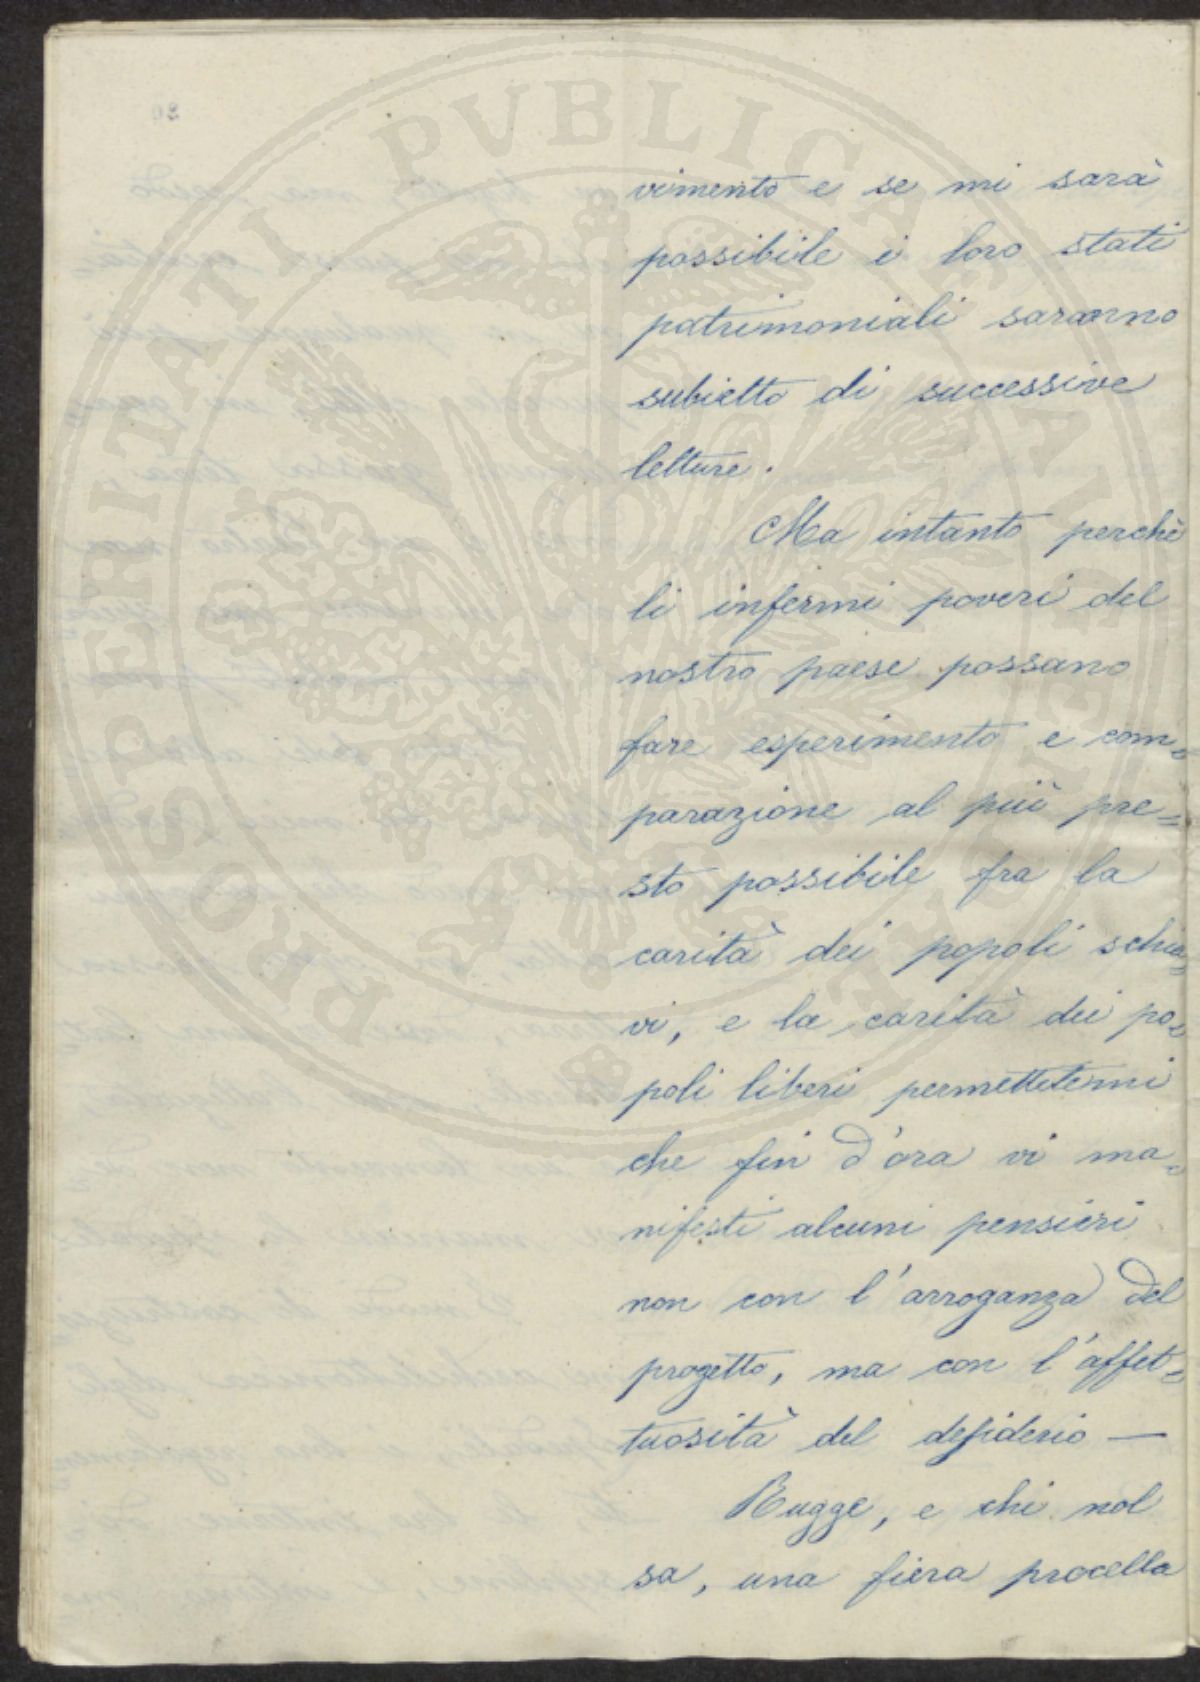 vimento e se mi sarà
possibile i loro stati
patrimoniali saranno
subietto di successive
letture.
Ma intanto perchè
li infermi poveri del
nostro paese possano
fare esperimento e com=
parazione al più pre=
sto possibile fra la
carità dei popoli schia=
vi, e la carità dei po=
poli liberi permettetemi
che fin d'ora vi ma=
nifesti alcuni pensieri
non con l'arroganza del
progetto, ma con l'affet=
tuosità del desiderio —
Rugge, e chi nol
sa, una fiera procella
PROSPERITATI PVBLICAE AVGENDAE